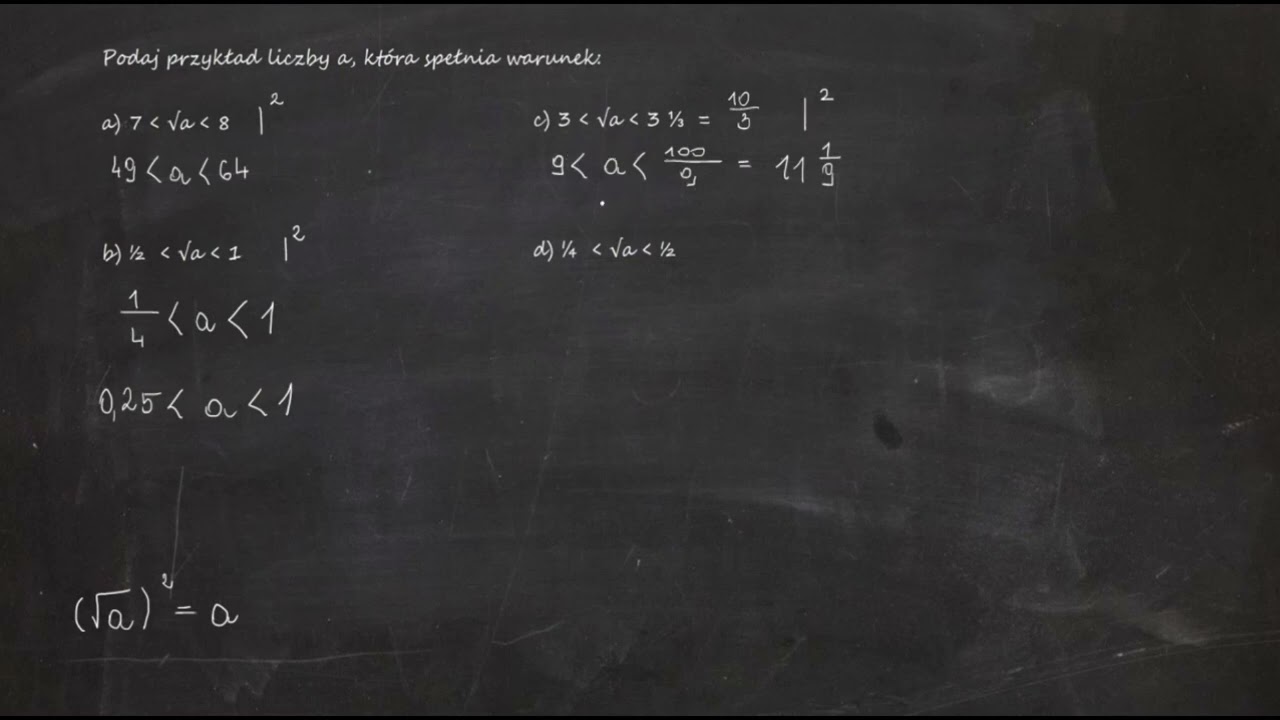 Podaj przykład liczby a, która spełnia warunek:
a) 7 < √a < 8 |²
49 < a < 64
b) ½ < √a < 1 |²
1/4 < a < 1
0,25 < a < 1
c) 3 < √a < 3 ⅓ = 10/3 |²
9 < a < 100/9 = 11 1/9
d) ¼ < √a < ½
(√a)² = a